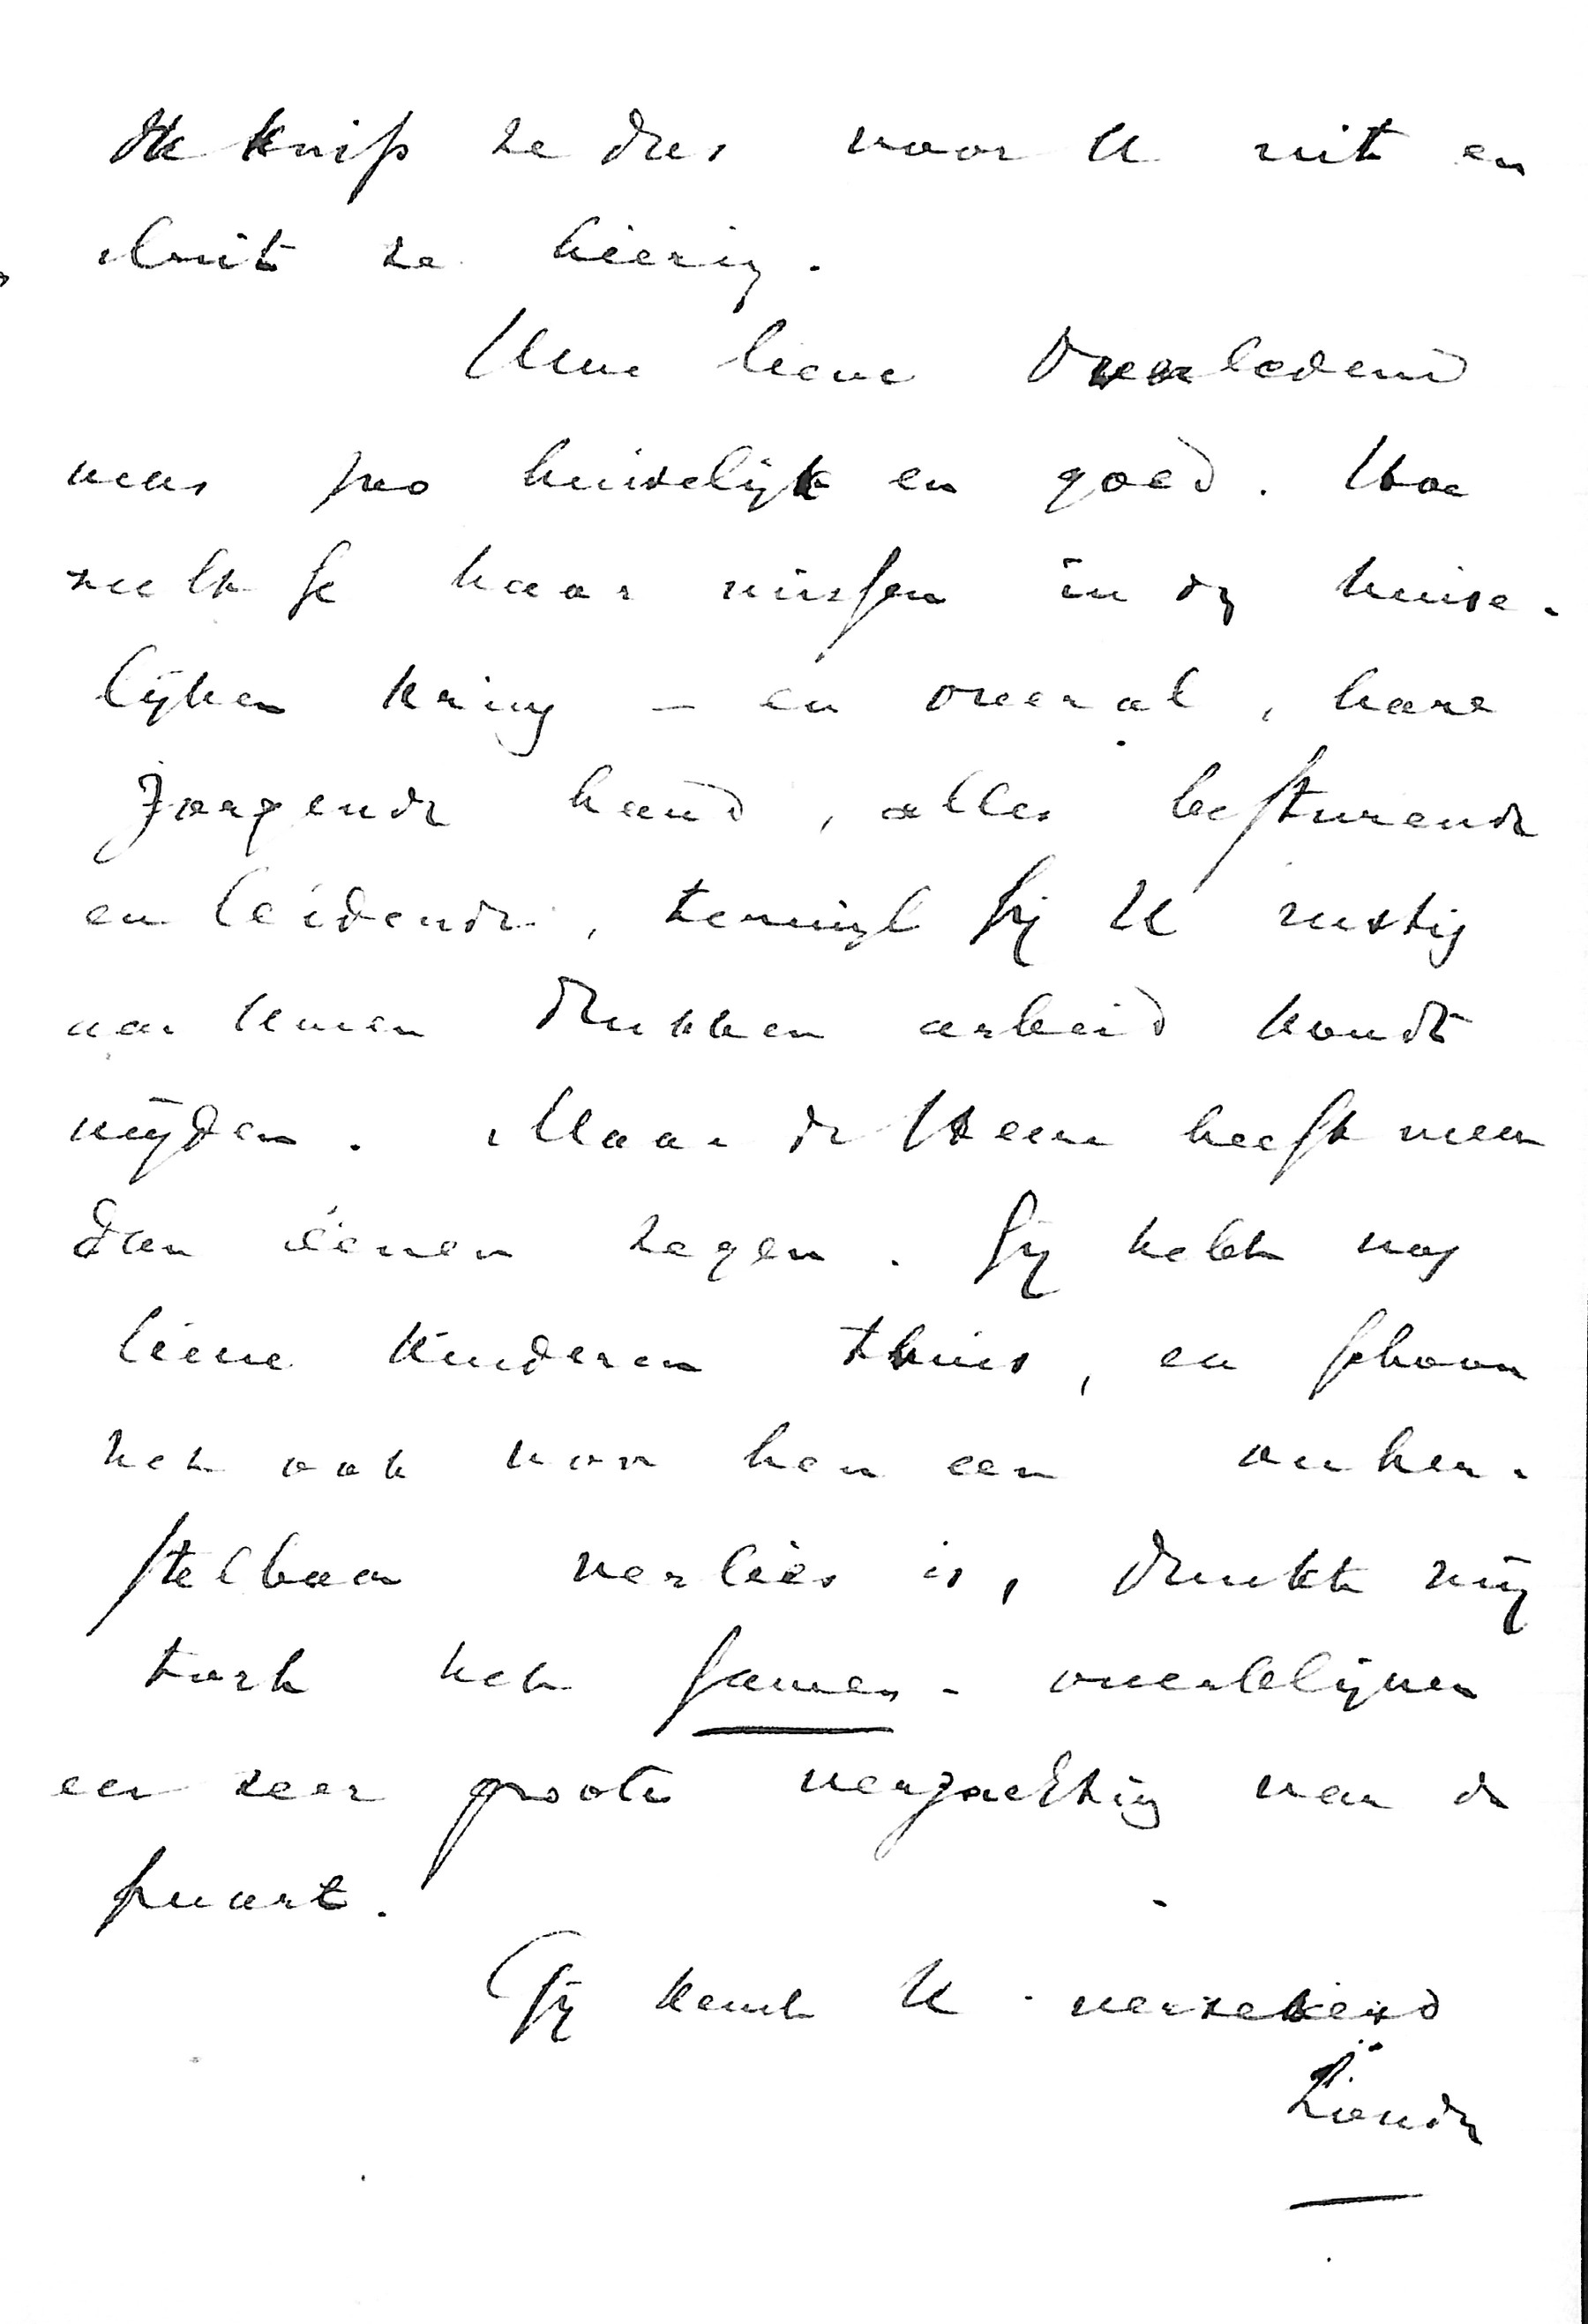 Ik knip ze dus voor U uit en
sluit ze hierin.
Uwe lieve Overledene
was zoo huiselijk en goed. Hoe
zult ge haar missen in den huise-
lijken kring – en overal, hare
zorgende hand, alles besturende
en leidende, terwijl gij U rustig
aan Uwen drukken arbeid kondt
wijden. Maar de Heere heeft meer
dan éénen zegen. Gij hebt nog
lieve kinderen thuis, en schoon
het ook voor hen een onher-
stelbaar verlies is, dunkt mij
toch het samen-overblijven
een zeer groote verzachting van de
smart.
Gij kent U verzekerd